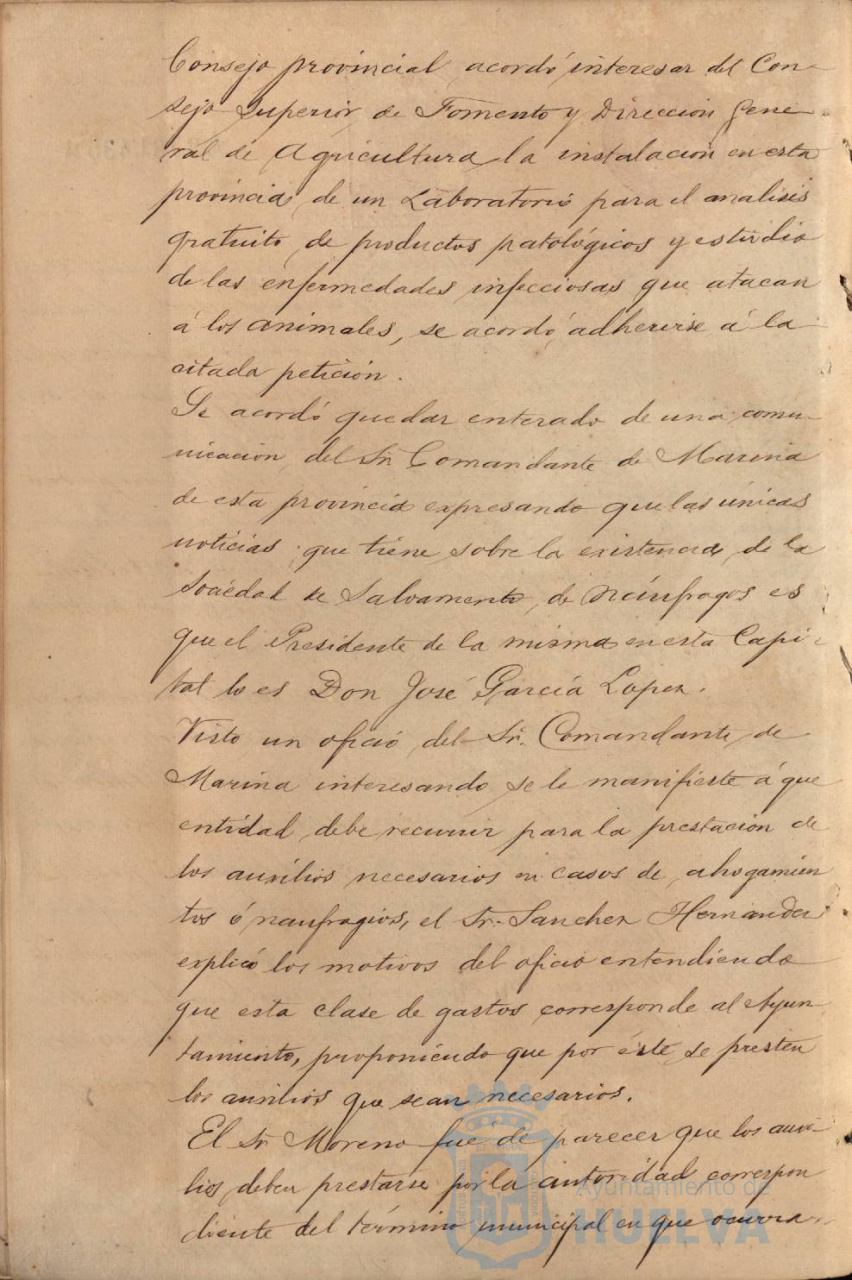 Consejo provincial acordó interesar del Con-
sejo Superior de Fomento y Dirección Gene-
ral de Agricultura la instalación en esta
provincia de un Laboratorio para el analisis
gratuito de productos patológicos y estudio
de las enfermedades infecciosas que atacan
á los animales, se acordó adherirse á la
citada petición.
Se acordó quedar enterado de una comu-
nicación del Sr. Comandante de Marina
de esta provincia expresando que las únicas
noticias que tiene sobre la existencia de la
Sociedad de Salvamento de Náufragos es
que el Presidente de la misma en esta Capi-
tal lo es Don José García Lopez.
Visto un oficio del Sr. Comandante de
Marina interesando se le manifieste á que
entidad debe recurrir para la prestación de
los auxilios necesarios en casos de ahogamien
tos ó naufragios, el Sr. Sanchez Hernandez
explicó los motivos del oficio entendiendo
que esta clase de gastos corresponde al Ayun
tamiento, proponiendo que por éste se presten
los auxilios que sean necesarios.
El Sr. Moreno fué de parecer que los auxi-
lios deben prestarse por la autoridad correspon
diente del término municipal en que ocurra
Ayuntamiento de
HUELVA